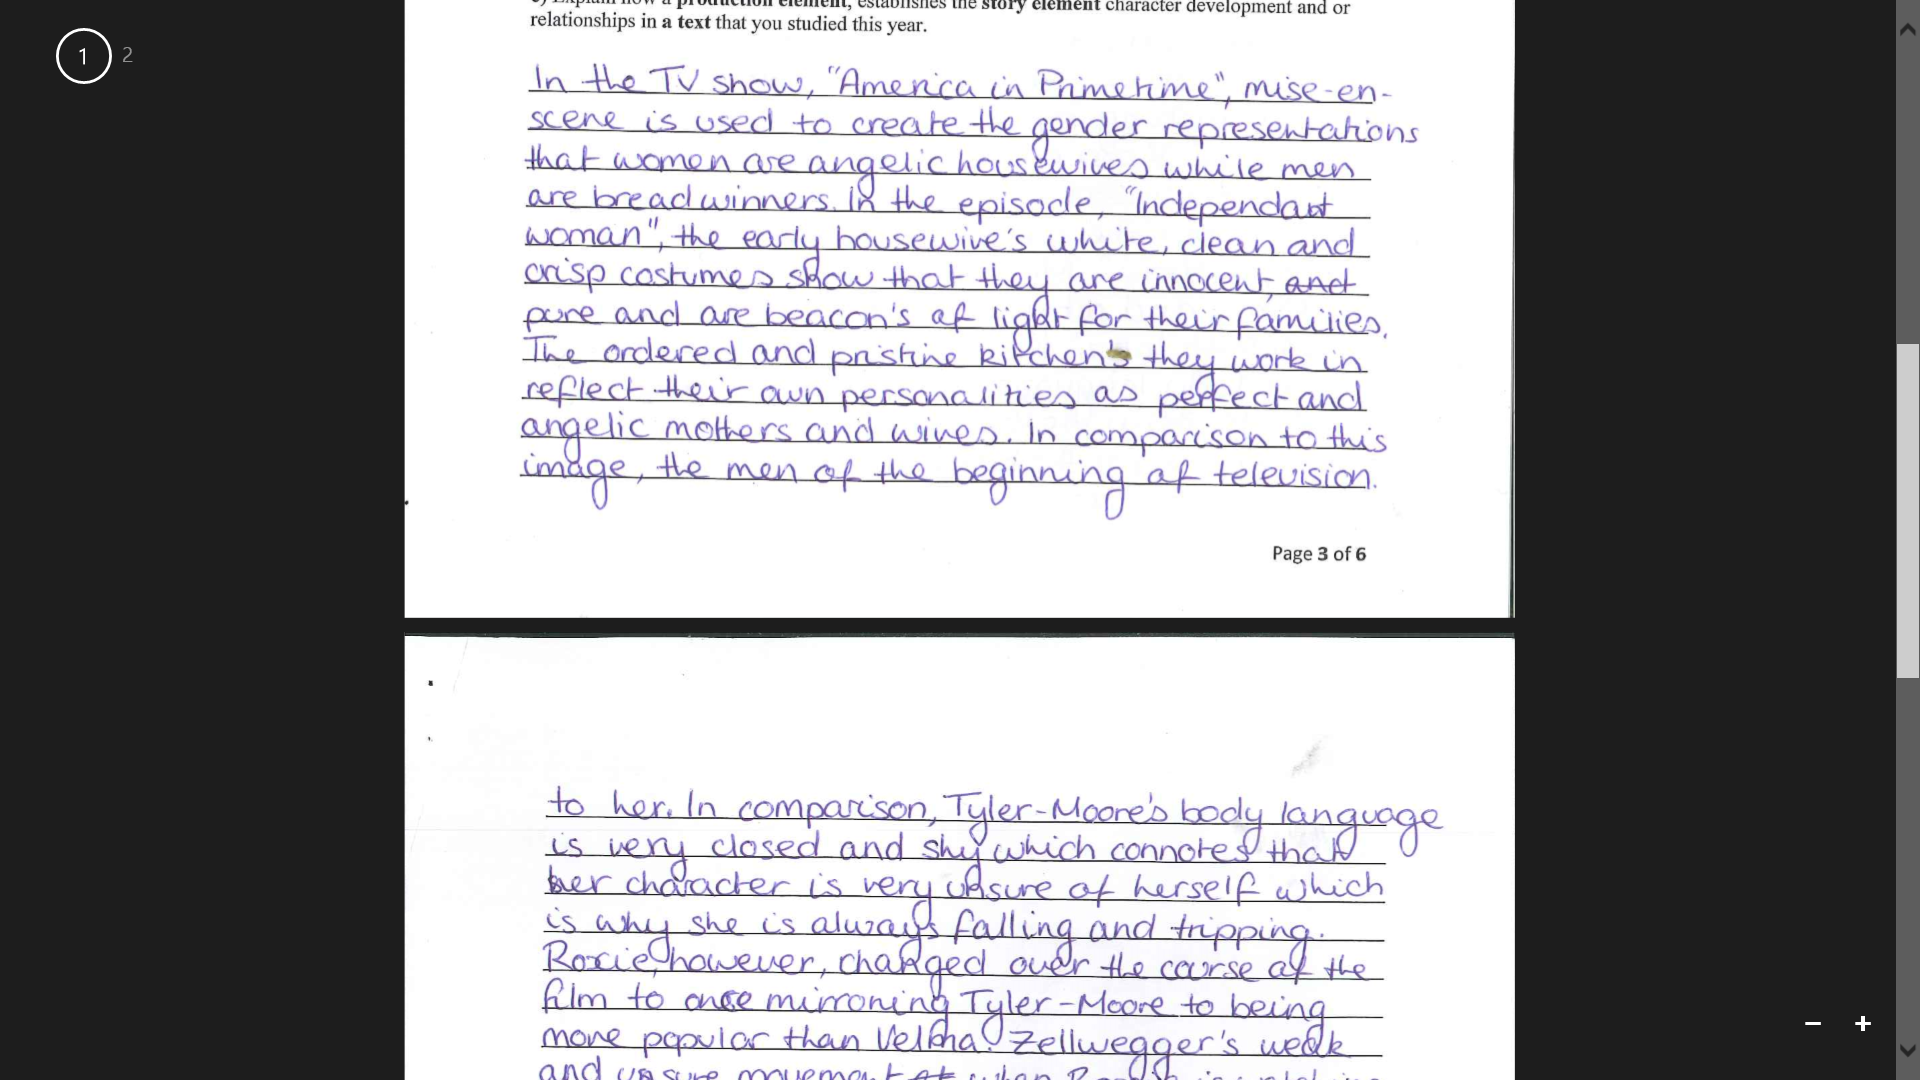 1
2
establishes the story element character development and or
relationships in a text that you studied this year.
In the TV show, "America in Primetime", mise-en-
scene is used to create the gender representations
that women are angelic housewives while men
are breadwinners. In the episode, "Independant
woman", the early housewive's white, clean and
crisp costumes show that they are innocent, and
pure and are beacon's of light for their families.
The ordered and pristine kitchen's they work in
reflect their own personalities as perfect and
angelic mothers and wives. In comparison to this
image, the men of the beginning of television.
Page 3 of 6
to her. In comparison, Tyler-Moore's body language
is very closed and shy which connotes that
her character is very unsure of herself which
is why she is always falling and tripping.
Roxie, however, changed over the course of the
film to once mirroring Tyler-Moore to being
more popular than Velma. Zellwegger's weak
and unsure movement at when